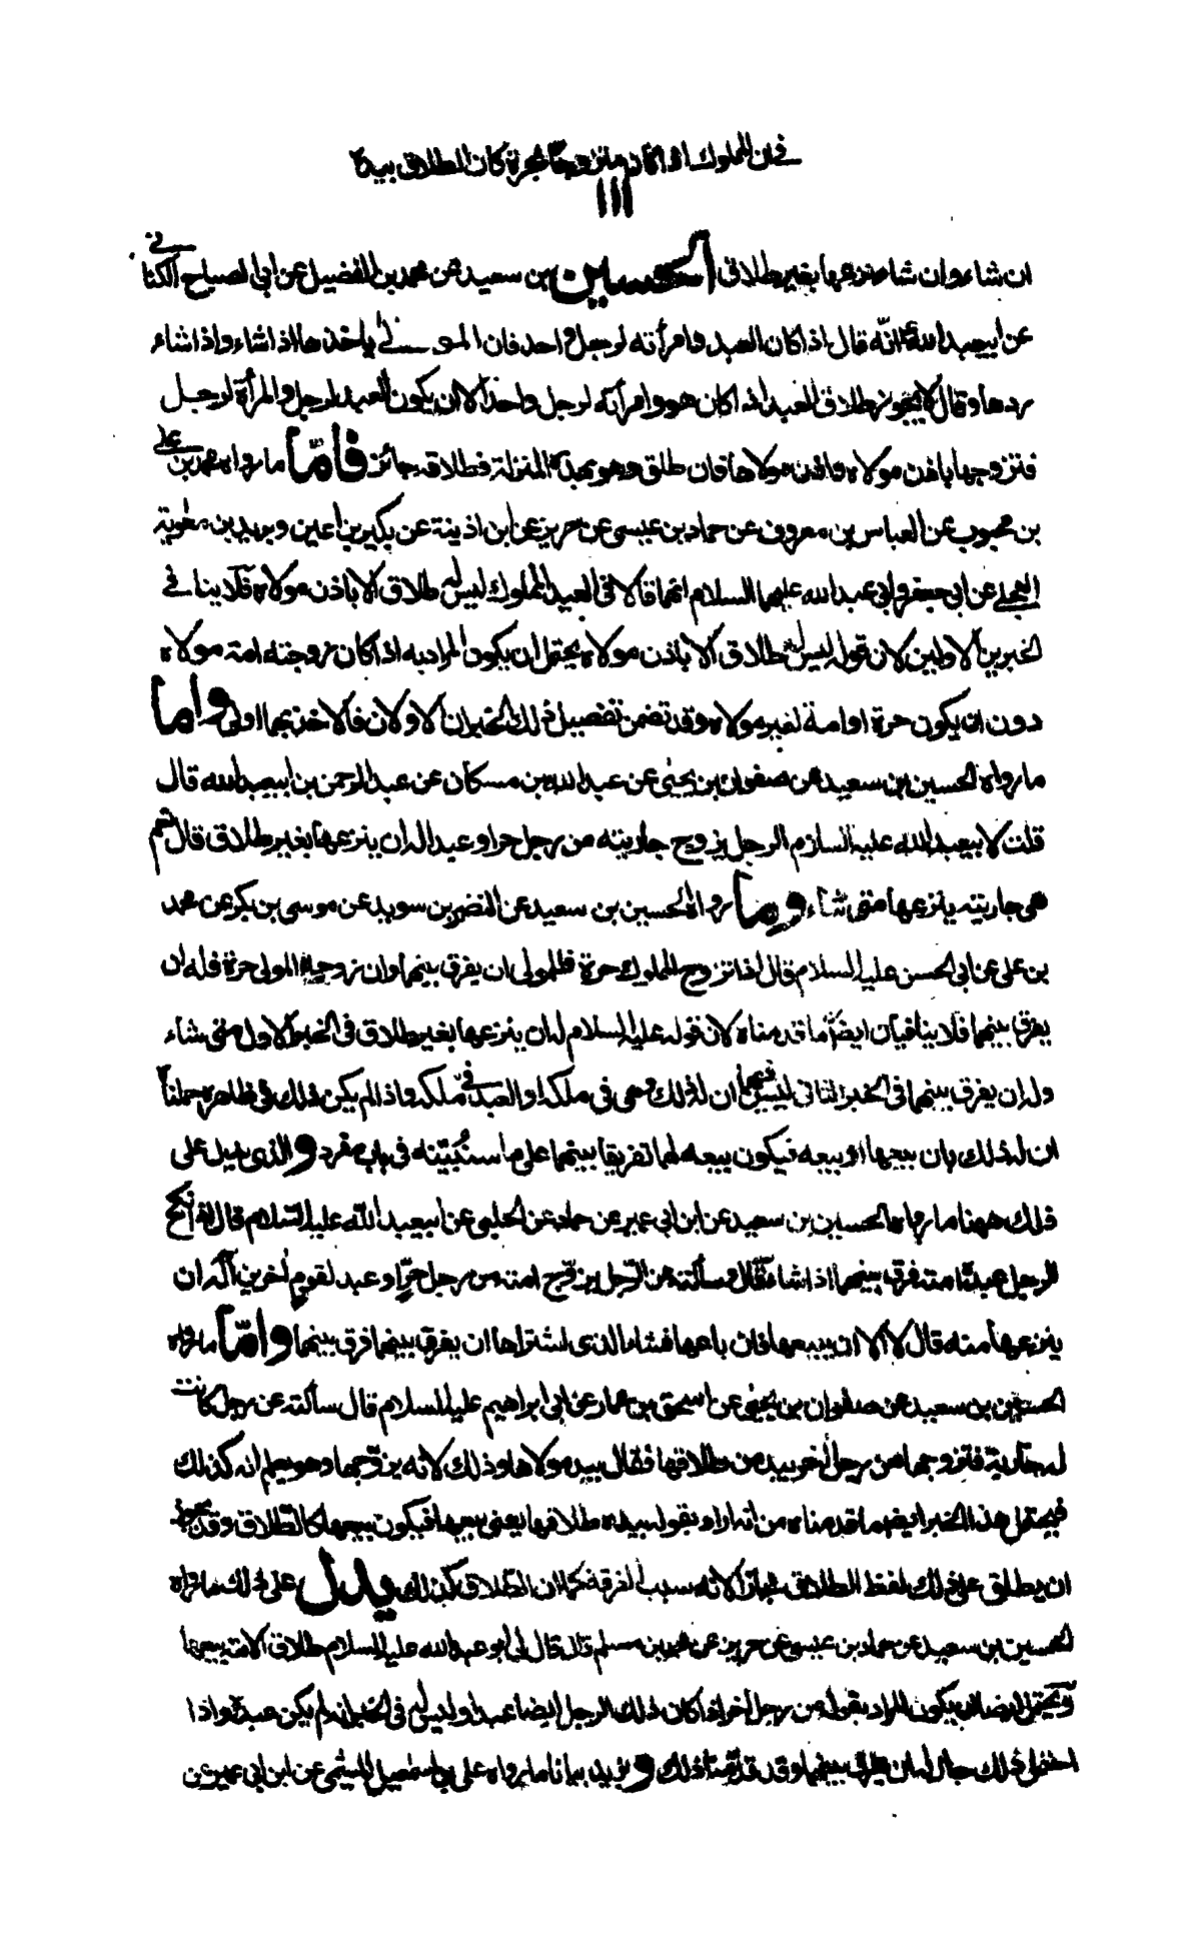 في ان المملوك اذا كان متزوجا بحرة كان الطلاق بيده
١١١
ان شاء وان شاء نزعها بغير طلاق الحسين بن سعيد عن محمد بن الفضيل عن ابي الصباح الكناني
عن ابيعبد الله ع انّه قال اذا كان العبد وامرأته لرجل واحد فان المولى ياخذها اذا شاء واذا شاء
ردها وقال لا يجوز طلاق العبد اذا كان هو وامرأته لرجل واحد الا ان يكون العبد لرجل والمرأة لرجل
فتزوجها باذن مولاه واذن مولاها فان طلق وهو بهذه المنزلة فطلاقه جائز فامّا ما رواه محمد بن علي
بن محبوب عن العباس بن معروف عن حماد بن عيسى عن حريز عن ابن اذينة عن بكير بن اعين وبريد بن معوية
العجلي عن ابي جعفر وابي عبد الله عليهما السلام انهما قالا في العبد المملوك ليس له طلاق الا باذن مولاه فلا ينافي
الخبرين الاولين لان قوله ليس له طلاق الا باذن مولاه يحتمل ان يكون المراد به اذا كان زوجته امة مولاه
دون ان يكون حرة او امة لغير مولاه وقد تضمن تفصيل ذلك الخبران الاولان فالاخذ بهما اولى واما
ما رواه الحسين بن سعيد عن صفوان بن يحيى عن عبد الله بن مسكان عن عبد الرحمن بن ابيعبد الله قال
قلت لابيعبد الله عليه السلام الرجل يزوج جاريته من رجل حر او عبد اله ان ينزعها بغير طلاق قال نعم
هي جاريته ينزعها متى شاء وما رواه الحسين بن سعيد عن النضر بن سويد عن موسى بن بكر عن محمد
بن علي عن ابي الحسن عليه السلام قال اذا تزوج المملوك حرة فللمولى ان يفرق بينهما وان زوجه المولى حرة فله ان
يفرق بينهما فلا ينافيان ايضا ما قدمناه لان قوله عليه السلام له ان ينزعها بغير طلاق في الخبر الاول متى شاء
وله ان يفرق بينهما في الخبر الثاني ليس فيهما ان له ذلك وهي في ملكه او العبد في ملكه واذا لم يكن ذلك في ظاهره حملناه
ان له ذلك بان يبيعها او يبيعه فيكون بيعه لهما تفريقا بينهما على ما سنُبيّنه في باب مفرد والذي يدل على
ذلك ههنا ما رواه الحسين بن سعيد عن ابن ابي عمير عن حماد عن الحلبي عن ابيعبد الله عليه السّلام قال اذا انكح
الرجل عبده امته فرق بينهما اذا شاء قال وسألته عن الرّجل يزوّج امته من رجل حرّ او عبد لقوم اخرين اله ان
ينزعها منه قال لا الا ان يبيعها فان باعها فشاء الذي اشتراها ان يفرق بينهما فرق بينهما وامّا ما رواه
الحسين بن سعيد عن صفوان بن يحيى عن اسحق بن عمار عن ابي ابراهيم عليه السلام قال سألته عن رجل كانت
له جارية فتزوجها من رجل اخر بيد من طلاقها فقال بيد مولاها وذلك لانه يزوّجها وهو يعلم انه كذلك
فيحتمل هذا الخبر ايضا ما قدمناه من انه اراد بقوله بيده طلاقها يعني بيعها فيكون بيعها كالطّلاق وقد يجوز
ان يطلق على ذلك لفظ الطلاق مجازا لانه سبب الفرقة كما ان الطّلاق كذلك يدل على ذلك ما رواه
الحسين بن سعيد عن حماد بن عيسى عن حريز عن محمد بن مسلم قال قال لي ابو عبد الله عليه السلام طلاق الامة بيعها
ويحتمل ايضا ان يكون المراد بقوله من رجل اخر اذا كان ذلك الرجل ايضا عبده وليس في الخبر انه لم يكن عبده واذا
احتمل ذلك جاز له ان يفرق بينهما وقد قدّمنا ذلك ويزيد بيانا ما رواه علي بن اسمعيل الميثمي عن ابن ابي عمير عن